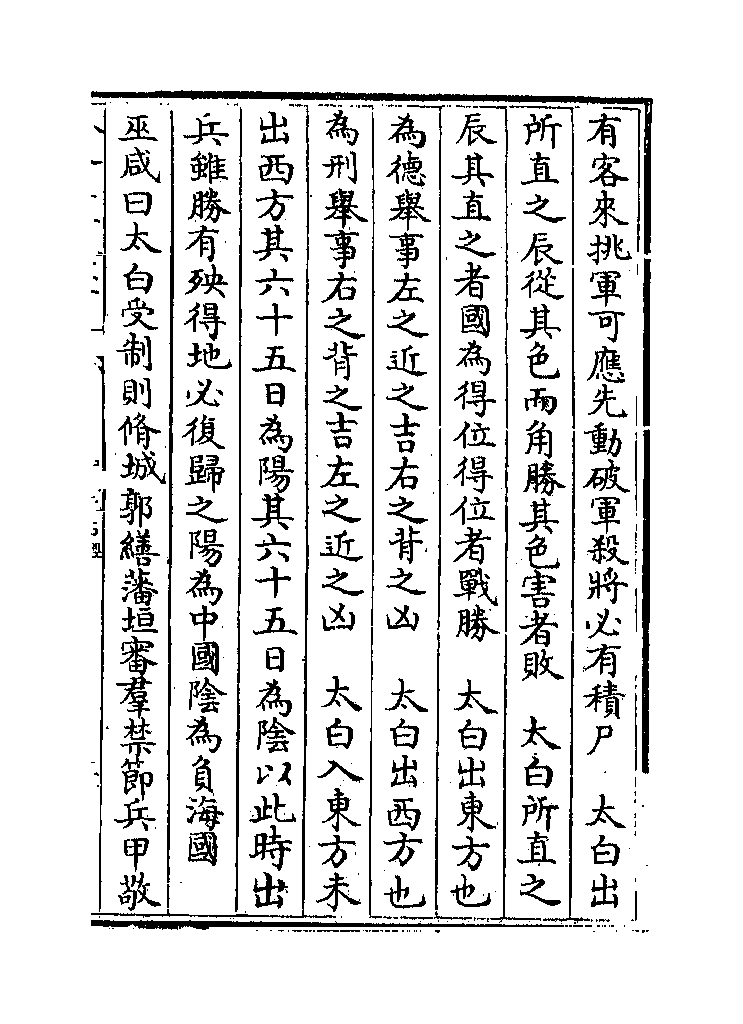 有客來挑軍可應先動破軍殺將必有積尸　太白出
所直之辰從其色而角勝其色害者敗　太白所直之
辰其直之者國為得位得位者戰勝　太白出東方也
為德舉事左之近之吉右之背之凶　太白出西方也
為刑舉事右之背之吉左之近之凶　太白入東方未
出西方其六十五日為陽其六十五日為陰以此時出
兵雖勝有殃得地必復歸之陽為中國陰為負海國
巫咸曰太白受制則脩城郭繕藩垣審羣禁節兵甲敬